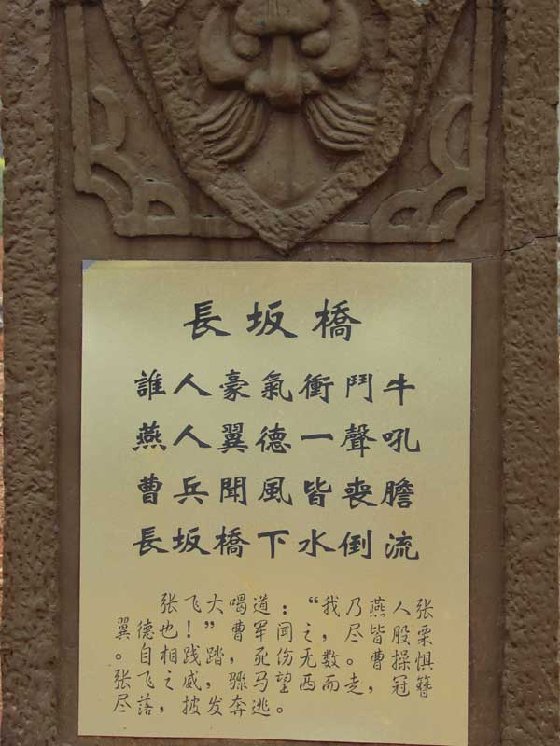 長坂橋
誰人豪氣衝鬥牛
燕人翼德一聲吼
曹兵聞風皆喪膽
長坂橋下水倒流
张飞大喝道：“我乃燕人张
翼德也！”曹军闻之，尽皆股栗
。自相践踏，死伤无数。曹操惧
张飞之威，骤马望西而走，冠簪
尽落，披发奔逃。